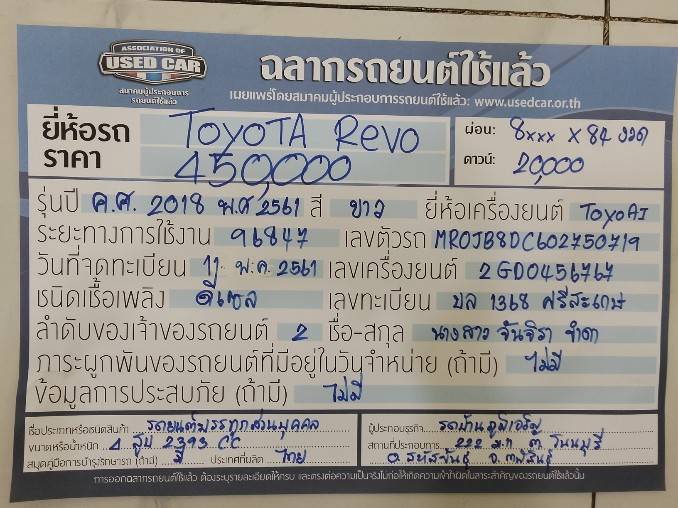 ASSOCIATION OF
USED CAR
สมาคมผู้ประกอบการ
รถยนต์ใช้แล้ว
ฉลากรถยนต์ใช้แล้ว
เผยแพร่โดยสมาคมผู้ประกอบการรถยนต์ใช้แล้ว: www.usedcar.or.th
ยี่ห้อรถ TOYOTA Revo
ราคา 450,000
ผ่อน: 8xxx X 84 งวด
ดาวน์: 20,000
รุ่นปี ค.ศ. 2018 พ.ศ 2561 สี ขาว ยี่ห้อเครื่องยนต์ TOYOAI
ระยะทางการใช้งาน 96847 เลขตัวรถ MROJB8DC602750719
วันที่จดทะเบียน 11 พ.ค. 2561 เลขเครื่องยนต์ 2GD0456767
ชนิดเชื้อเพลิง ดีเซล เลขทะเบียน บล 1368 ศรีสะเกษ
ลำดับของเจ้าของรถยนต์ 2 ชื่อ-สกุล นางสาว จันจิรา จำดา
ภาระผูกพันของรถยนต์ที่มีอยู่ในวันจำหน่าย (ถ้ามี) ไม่มี
ข้อมูลการประสบภัย (ถ้ามี) ไม่มี
ชื่อประเภทหรือชนิดสินค้า รถยนต์บรรทุกส่วนบุคคล
ขนาดหรือน้ำหนัก 4 สูบ 2393 CC
สมุดคู่มือการบำรุงรักษารถ (ถ้ามี) มี ประเทศที่ผลิต ไทย
ผู้ประกอบธุรกิจ รถบ้านภูมิเจริญ
สถานที่ประกอบการ 222 ม.1 ต. โนนบุรี
อ. สหัสขันธ์ จ. กาฬสินธุ์
การออกฉลากรถยนต์ใช้แล้ว ต้องระบุรายละเอียดให้ครบ และตรงต่อความเป็นจริงไม่ก่อให้เกิดความเข้าใจผิดในสาระสำคัญของรถยนต์ใช้แล้วนั้น